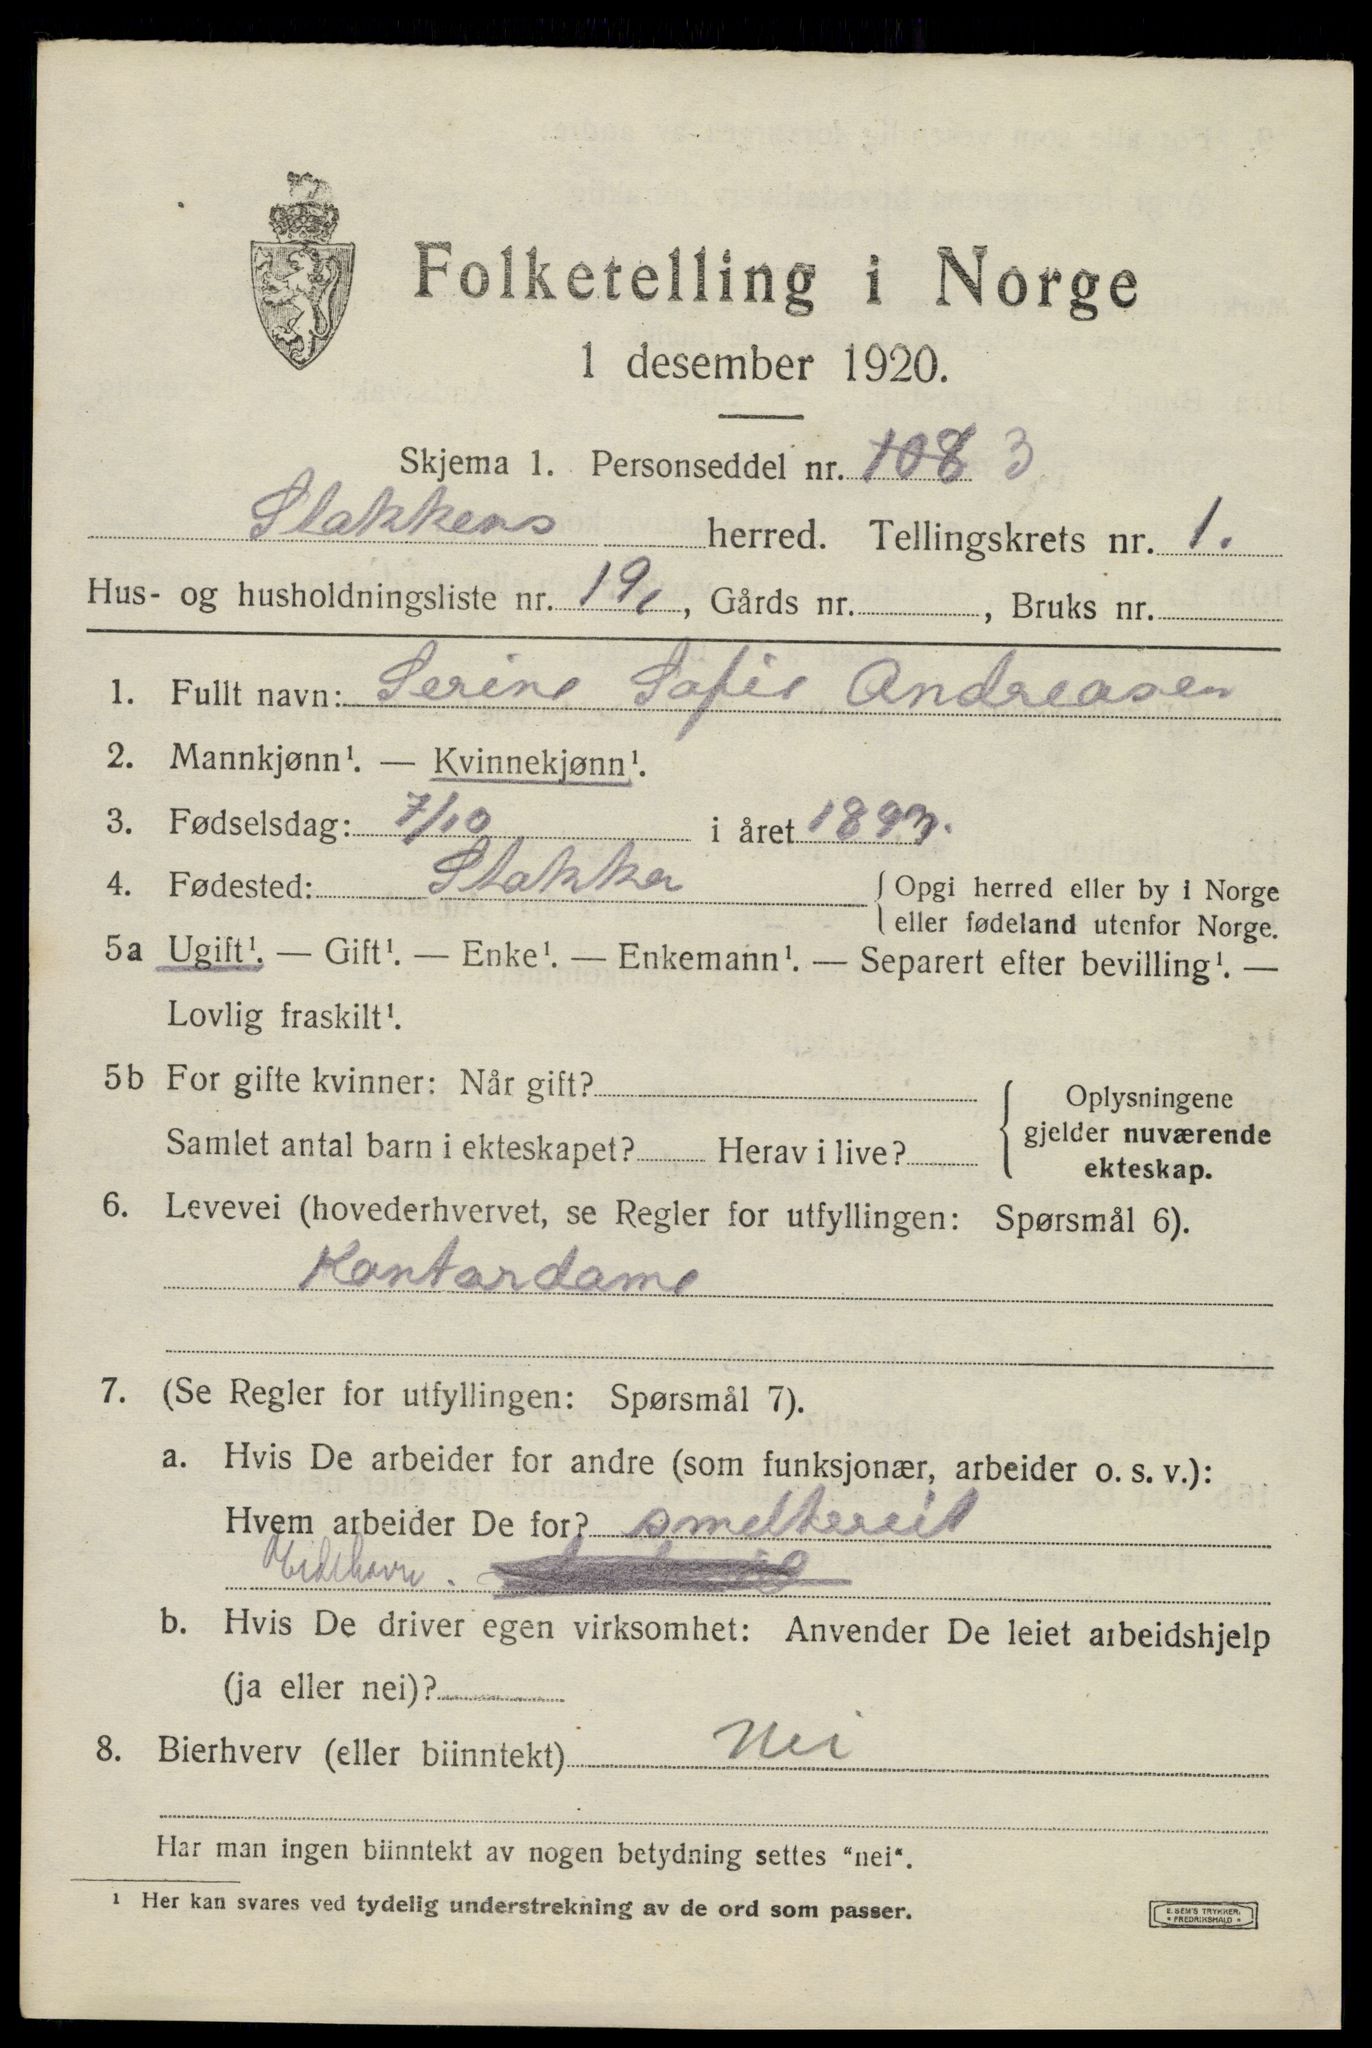 Folketelling i Norge
1 desember 1920.
Skjema 1. Personseddel nr. 108 3
Stokkens herred. Tellingskrets nr. 1.
Hus- og husholdningsliste nr. 19, Gårds nr. , Bruks nr.
1. Fullt navn: Serine Sofie Andreasen
2. Mannkjønn¹. — Kvinnekjønn¹.
3. Fødselsdag: 7/10 i året 1893.
4. Fødested: Stokken { Opgi herred eller by i Norge
eller fødeland utenfor Norge.
5a Ugift¹. — Gift¹. — Enke¹. — Enkemann¹. — Separert efter bevilling¹. —
Lovlig fraskilt¹.
5b For gifte kvinner: Når gift? { Oplysningene
gjelder nuværende
Samlet antal barn i ekteskapet? Herav i live?
ekteskap.
6. Levevei (hovederhvervet, se Regler for utfyllingen: Spørsmål 6).
Kontordame
7. (Se Regler for utfyllingen: Spørsmål 7).
a. Hvis De arbeider for andre (som funksjonær, arbeider o. s. v.):
Hvem arbeider De for? smelteriet
Eidehavn.
b. Hvis De driver egen virksomhet: Anvender De leiet arbeidshjelp
(ja eller nei)?
8. Bierhverv (eller biinntekt) Nei
Har man ingen biinntekt av nogen betydning settes "nei".
¹ Her kan svares ved tydelig understrekning av de ord som passer.
E. SEM'S TRYKKERI
FREDRIKSHALD